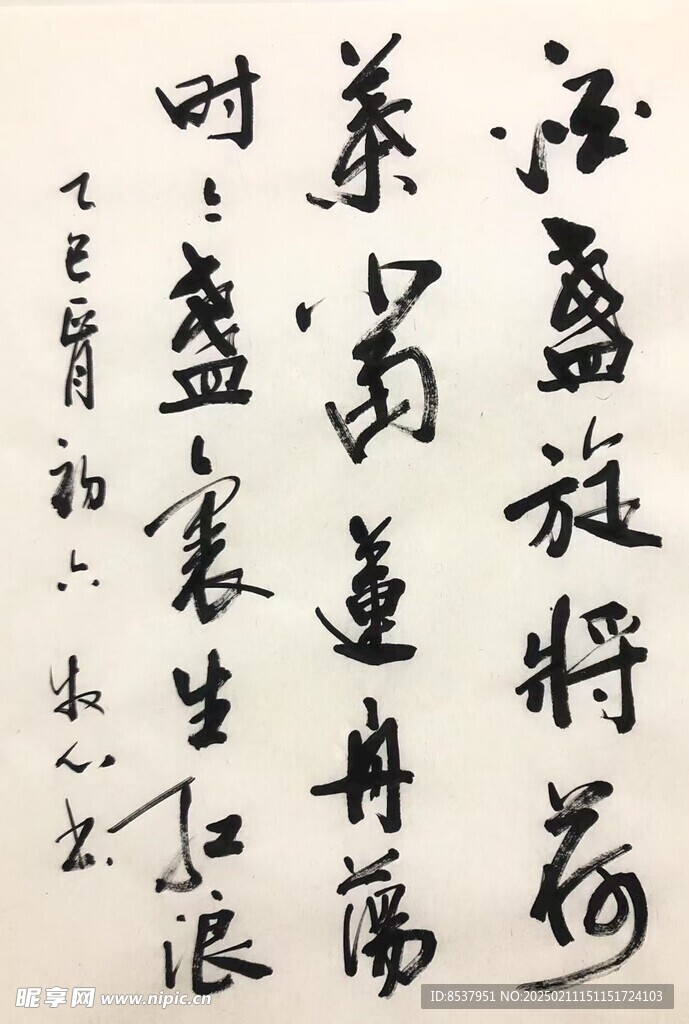 酒盞旋将荷
葉當蓮舟蕩
时〻盞裏生红浪
乙巳正月初六 牧心书
昵享网 www.nipic.cn
ID:8537951 NO:20250211151151724103